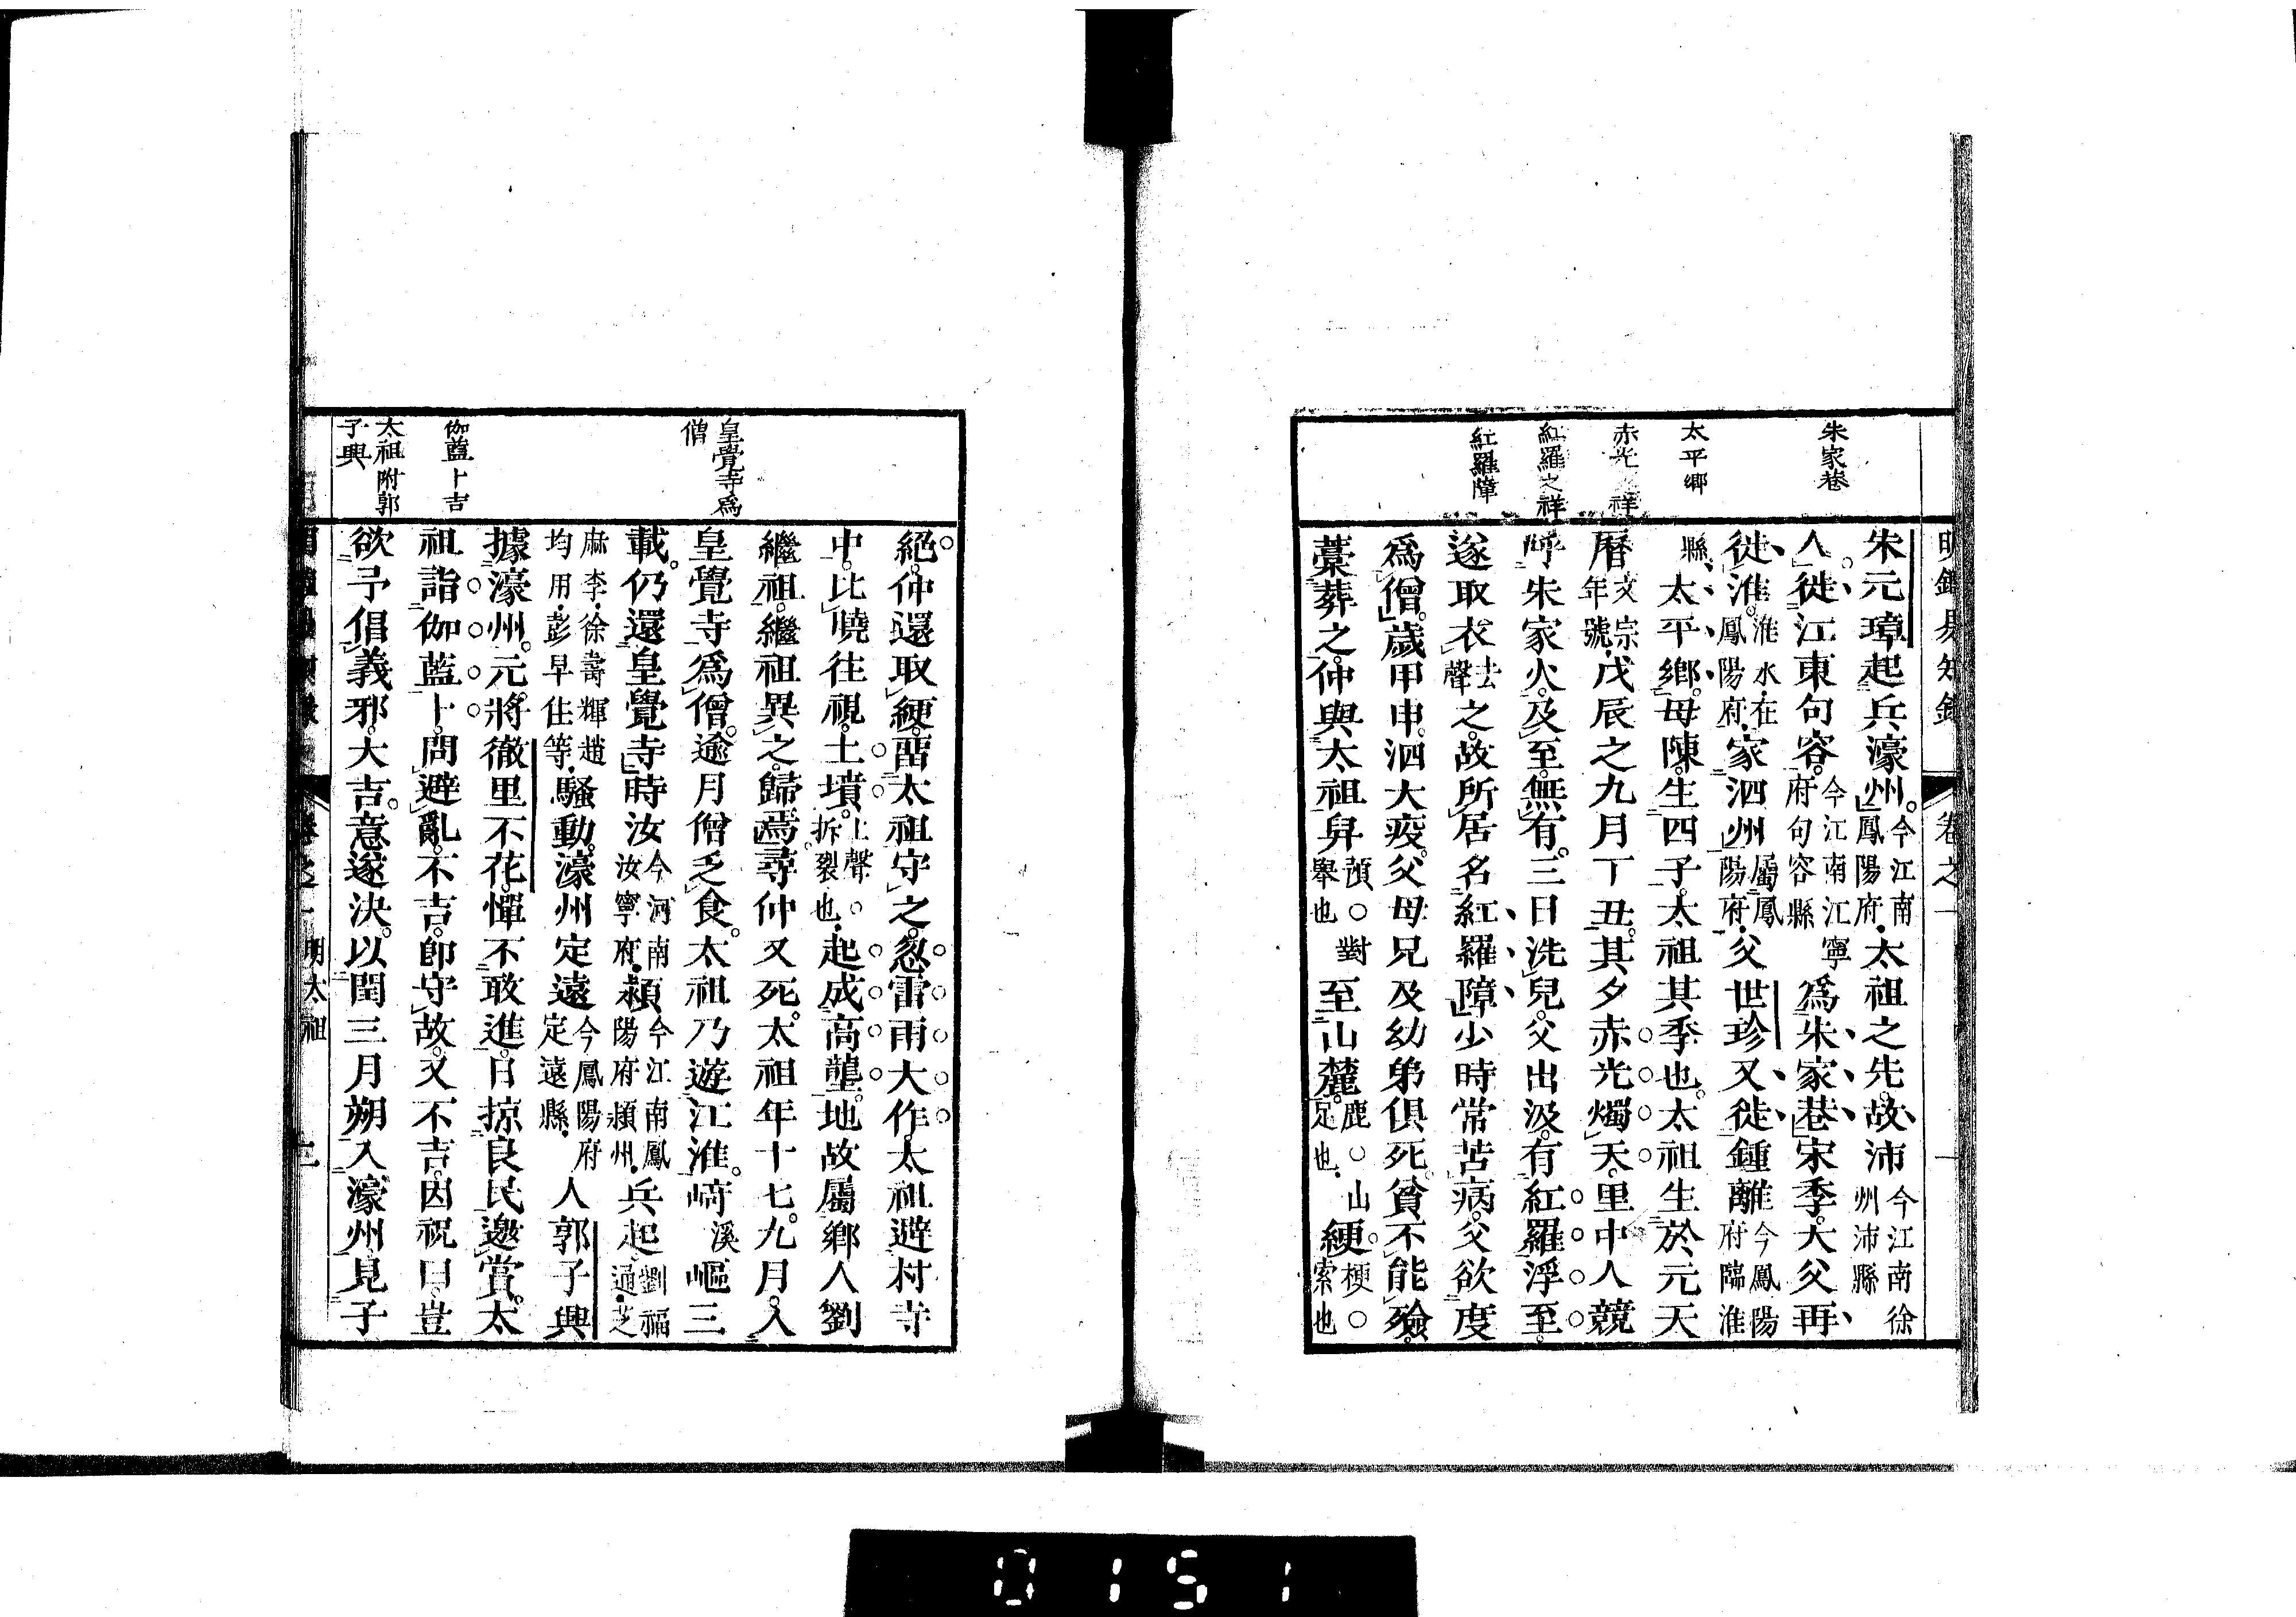 明鑑易知錄 卷之一 一
朱家巷
太平鄉
赤光 祥
紅羅之祥
紅羅障
朱元璋起兵濠州。今江南鳳陽府．太祖之先。故沛今江南徐州沛縣
人。徙江東句容。今江南江寧府句容縣為朱家巷。宋季。大父再
徙淮。淮水．在鳳陽府．家泗州屬鳳陽府．父世珍又徙鍾離今鳳陽府臨淮
縣太平鄉。母陳。生四子。太祖其季也。太祖生於元天
曆文宗年號．戊辰之九月丁丑。其夕赤光燭天。里中人競
呼朱家火。及至。無有。三日洗兒。父出汲。有紅羅浮至。
遂取衣去聲之。故所居名紅羅障。少時常苦病。父欲度
為僧。歲甲申。泗大疫。父母兄及幼弟俱死。貧不能殮。
藁葬之。仲與太祖舁預○對舉也至山麓。鹿○山足也．綆。梗○索也
皇覺寺為僧
伽藍卜吉
太祖附郭子興
絕。仲還取綆。畱太祖守之。忽雷雨大作。太祖避村寺
中。比曉往視。土墳。上聲○拆裂也．起成高壟。地故屬鄉人劉
繼祖。繼祖異之。歸焉。尋仲又死。太祖年十七。九月。入
皇覺寺為僧。逾月僧乏食。太祖乃遊江淮。崎溪嶇三
載。仍還皇覺寺。時汝今河南汝寧府．潁今江南鳳陽府潁州．兵起劉福通．芝
麻李．徐壽輝趙均用．彭早住等．騷動。濠州定遠今鳳陽府定遠縣．人郭子興
據濠州。元將徹里不花。憚不敢進。日掠良民邀賞。太
祖詣伽藍卜。問避亂。不吉。卽守故。又不吉。因祝曰。豈
欲予倡義邪。大吉。意遂決。以閏三月朔入濠州。見子
卷之一 明太祖 二
0151